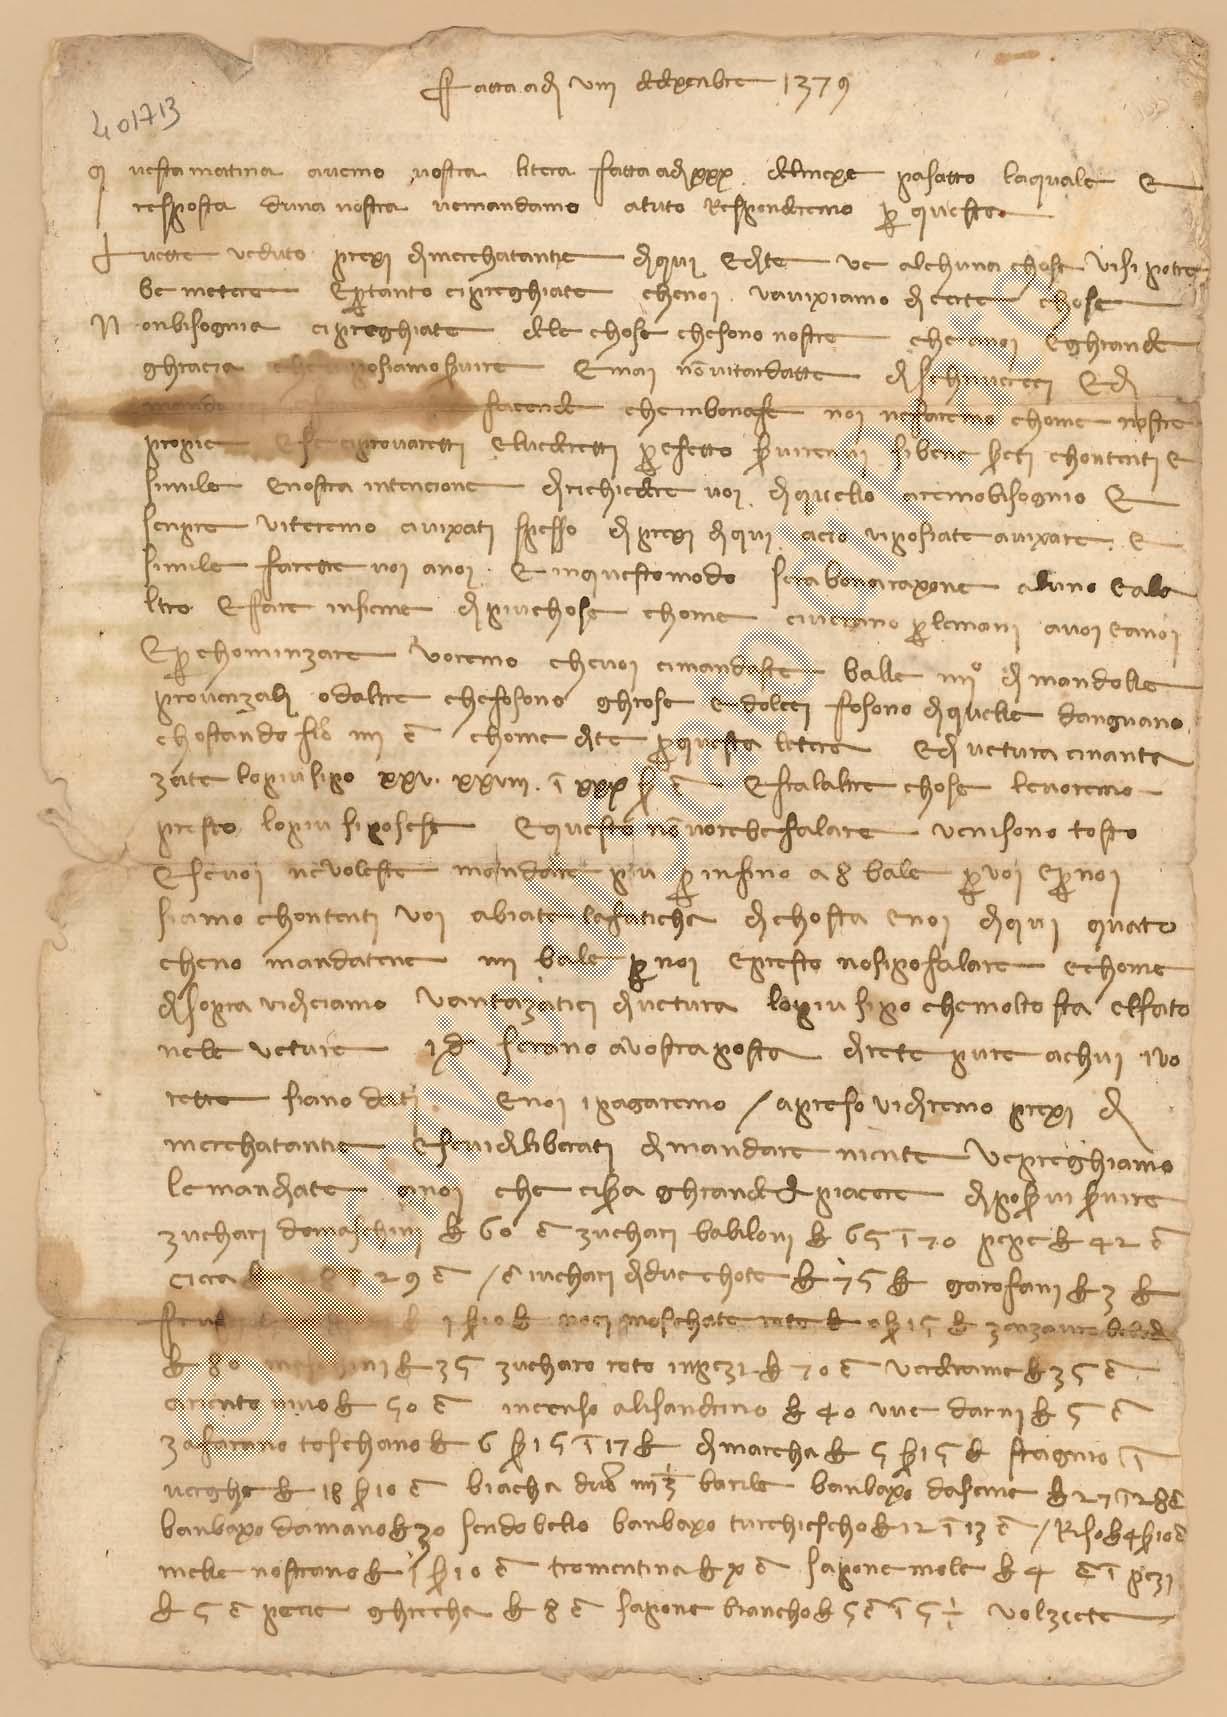 Fatta adi viii dedixenbre 1379
401713
Questa matina avemo vostra litera fatta adi xxx delmexe pasatto laquale e
resposta duna nostra vemandamo atuto Respondremo per questa
Avette veduto prexi dimerchatantie diqui edite ve alchuna chose visi potre
be metere epertanto cipreghiate chenoi vavixiamo di certe chose
Nonbisognia cipreghiate dele chose chesono nostre che anoi eghrande
ghracia che posiamo servire Emai nonvitardatte di schriverci Edi
mando facende chenbonafe noi nefaremo chome nostre
propie Esse ciprovaretti eluedretti per efetto servirenvi sibene sereti chontenti e
simile enostra intencione dirichiedere voi diquello aremobisognio E
senpre viteremo avixati spesso di prexi diqui acio viposiate avixare e
simile farette voi anoi Einquestomodo sera bonaraxone aluno eala
ltro Effare insieme di piuchose chome civerano perlemani avoi eanoi
Eperchominzare voremo chevoi cimandaste balle iiii° di mandolle
provenzali odaltre chefosono ghrose edolci fosono diquelle danguano
chostando fio iiii c chome dite perquesta letera Edi vetura civanta
zate lopiusipo xxv. xxviii. in xxx s c Efralaltre chose levoremo
presto lopiu siposese Equesto nonvorebefalare venisono tosto
Esevoi nevoleste mandare piu per infino a 8 bale pervoi epernoi
siamo chontenti voi abiate lafaticha dichosta enoi diqui quato
cheno mandatene iiii bale per noi epresto nosipofalare echome
disopra vidiciamo vantazatici divetura lopiu sipo chemolto sta elfato
nele veture i d serano avostraposta direte pure achui ivo
rette siano dati Enoi ipagaremo / apreso vidiremo prexi di
merchatantie Esevidiliberati dimandare niente vepreghiamo
lemandiate anoi che cisera ghrande piacere diposervi servire
zuchari domaschini £ 60 c zuchari babiloni £ 65 in 70 pepe £ 42 c
Ciera 29 c / c iuchari didue chote £ 75 £ garofani £ 3 £
1 s 10 £ noci moschate rote £ o s 15 £ zenzavro beledi
£ 80 mechini £ 35 zucharo roto inpezi £ 70 c verderame £ 35 c
ariento vivo £ 50 c incenso alisandrino £ 40 uve darni £ 5 c
zafarano toschano £ 6 s 15 in 17 £ dimarcha £ 5 s 15 £ stagnio in
verghe £ 18 s 10 c biacha duc iiii 1/3 barile banbaxo daseme £ 27 in 28 c
banbaxo damano £ 30 sendo bello banbaxo turchiescho £ 12 in 13 c / Riso £ 4 s 10 c
mele nostrano £ s 10 c tromentina £ x c sapone mole £ 4 c in pezi
£ 5 c pecie ghrecha £ 8 c sapone biancho £ 5 c in 5 1/2 volzette